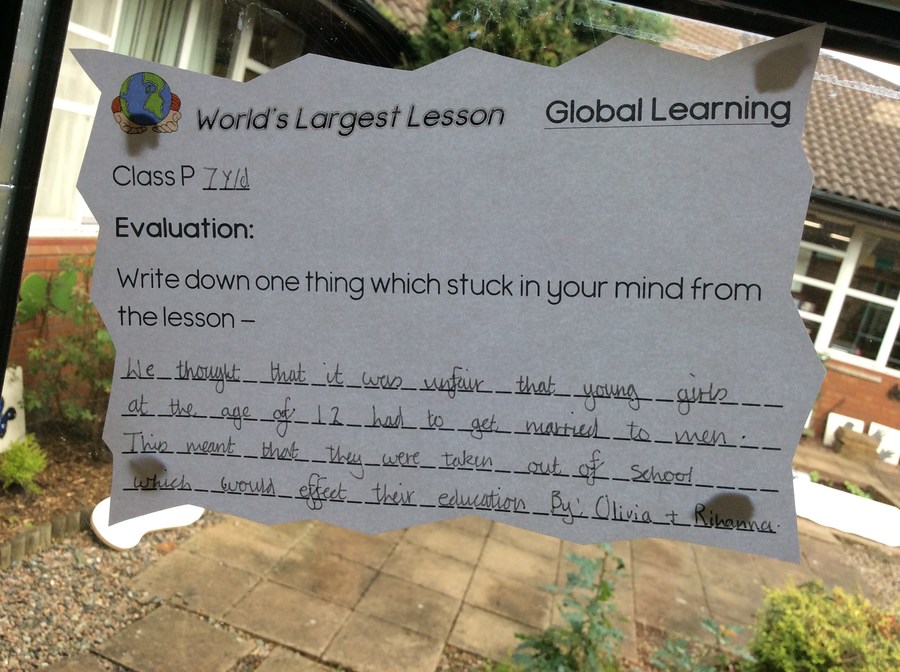 World's Largest Lesson Global Learning
Class P 7Y/d
Evaluation:
Write down one thing which stuck in your mind from
the lesson –
We thought that it was unfair that young girls
at the age of 12 had to get married to men.
This meant that they were taken out of school
which would effect their education By: Olivia + Rihanna.